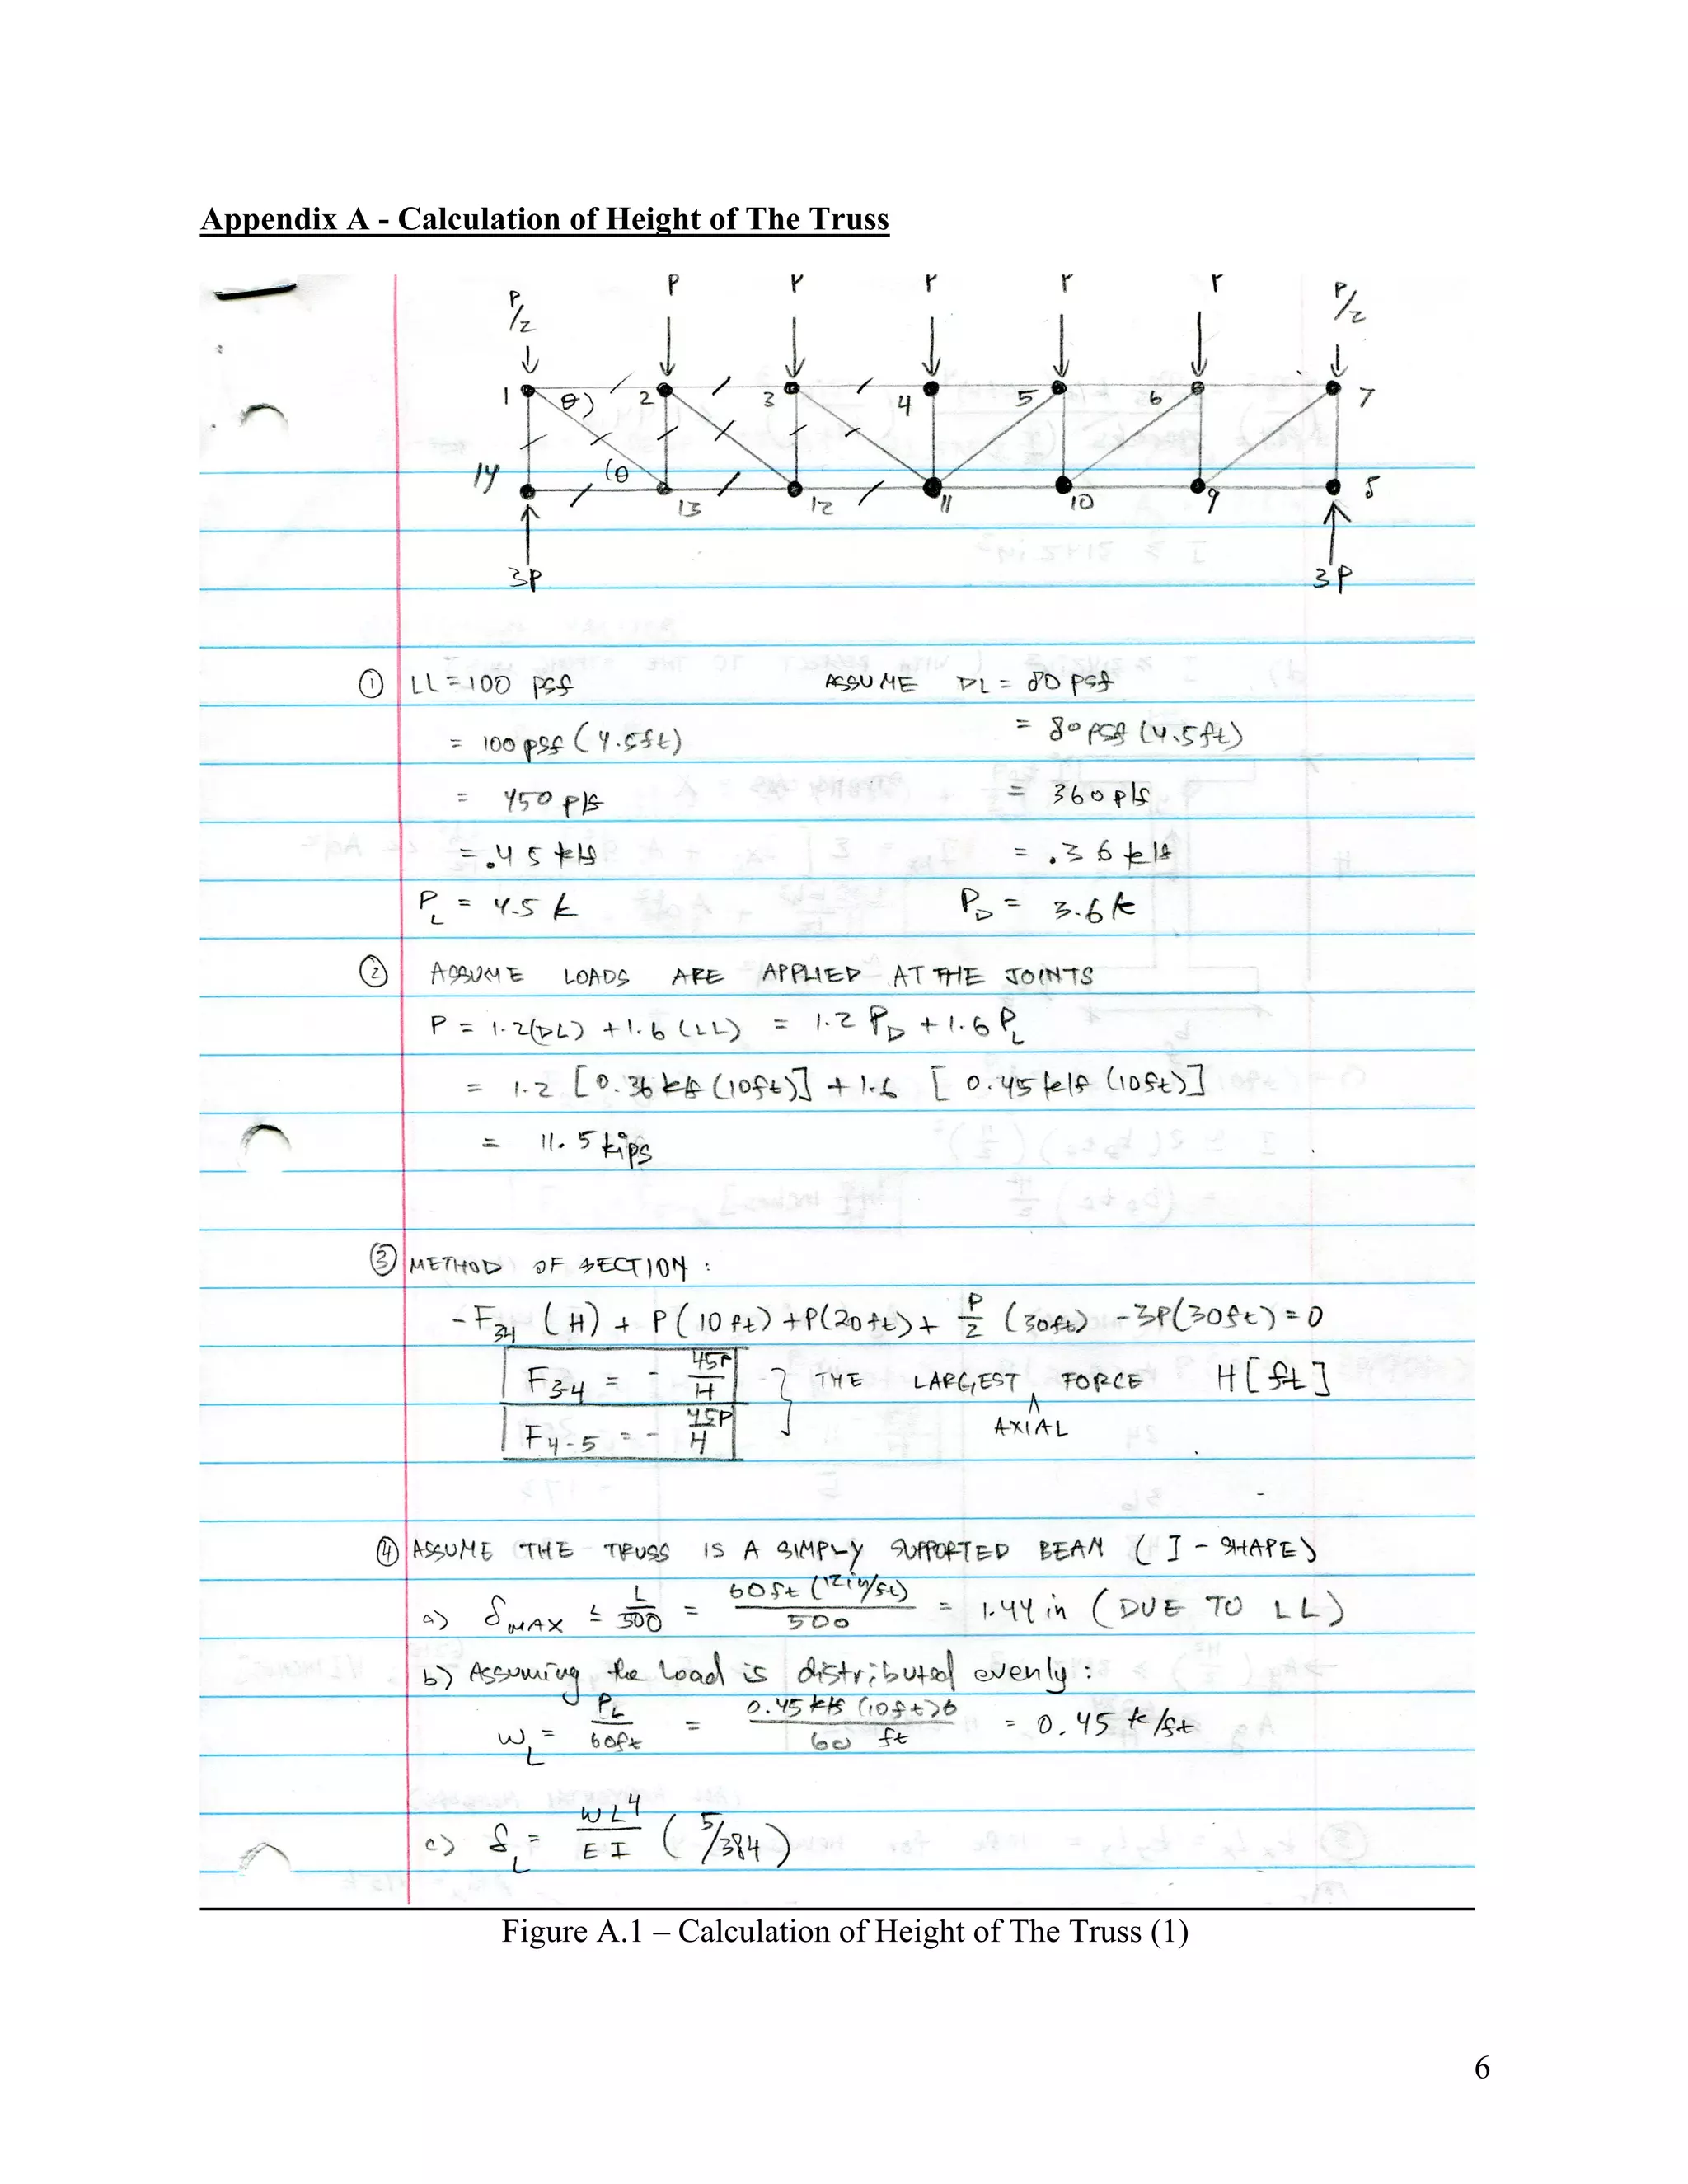 Appendix A - Calculation of Height of The Truss
P/2 P P P P P P/2
1 θ 2 3 4 5 6 7
14 θ 13 12 11 10 9 8
3P 3P
① LL = 100 psf ASSUME DL = 80 psf
= 100 psf (4.5ft) = 80 psf (4.5ft)
= 450 plf = 360 plf
= .45 klf = .36 klf
P_L = 4.5 k P_D = 3.6 k
② ASSUME LOADS ARE APPLIED AT THE JOINTS
P = 1.2(DL) + 1.6 (LL) = 1.2 P_D + 1.6 P_L
= 1.2 [0.36 klf (10ft)] + 1.6 [0.45 klf (10ft)]
= 11.5 kips
③ METHOD OF SECTION :
-F_34 (H) + P(10 ft) + P(20 ft) + P/2 (30ft) - 3P(30ft) = 0
F_3-4 = - 45P/H } THE LARGEST ^ AXIAL FORCE H [ft]
F_4-5 = - 45P/H
④ ASSUME THE TRUSS IS A SIMPLY SUPPORTED BEAM (I - SHAPE)
a) δ_MAX ≤ L/500 = 60ft (12in/ft)/500 = 1.44 in (DUE TO LL)
b) Assuming the Load is distributed evenly :
w_L = P_L/60ft = 0.45 klf (10ft)6/60 ft = 0.45 k/ft
c) δ_L = wL^4/EI (5/384)
Figure A.1 – Calculation of Height of The Truss (1)
6